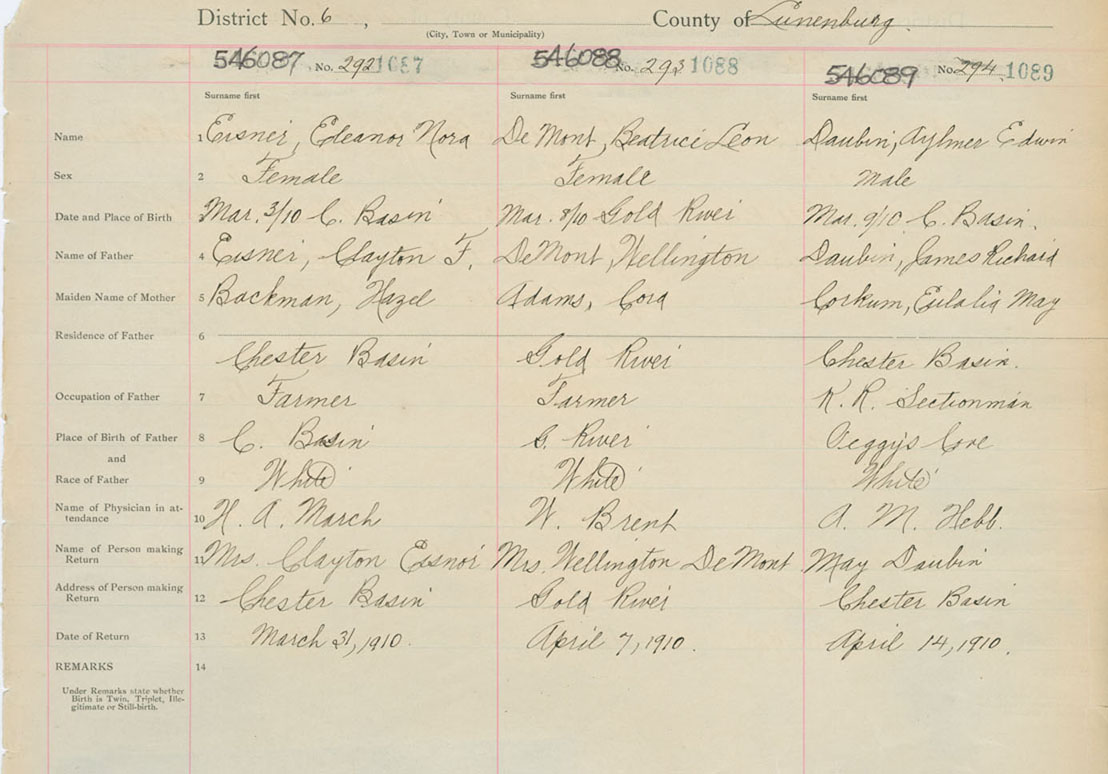 District No. 6 , County of Lunenburg.
(City, Town or Municipality)
546087 No. 292 1087 546088 No. 293 1088 546089 No. 294 1089
Surname first Surname first Surname first
Name 1 Eisner, Eleanor Nora De Mont, Beatrice Leon Daubin, Aylmer Edwin
Sex 2 Female Female Male
Date and Place of Birth Mar. 3/10 C. Basin Mar. 8/10 Gold River Mar. 9/10 C. Basin.
Name of Father 4 Eisner, Clayton F. DeMont, Wellington Daubin, James Richard
Maiden Name of Mother 5 Backman, Hazel Adams, Cora Corkum, Eulalia May
Residence of Father 6
Chester Basin Gold River Chester Basin.
Occupation of Father 7 Farmer Farmer R. R. Sectionman
Place of Birth of Father 8 C. Basin G. River Peggy's Cove
and
Race of Father 9 White White White
Name of Physician in at-
tendance 10 H. A. March W. Brent A. M. Hebb.
Name of Person making
Return 11 Mrs. Clayton Eisnor Mrs. Wellington DeMont May Daubin
Address of Person making
Return 12 Chester Basin Gold River Chester Basin
Date of Return 13 March 31, 1910. April 7, 1910. April 14, 1910.
REMARKS 14
Under Remarks state whether
Birth is Twin, Triplet, Ille-
gitimate or Still-birth.